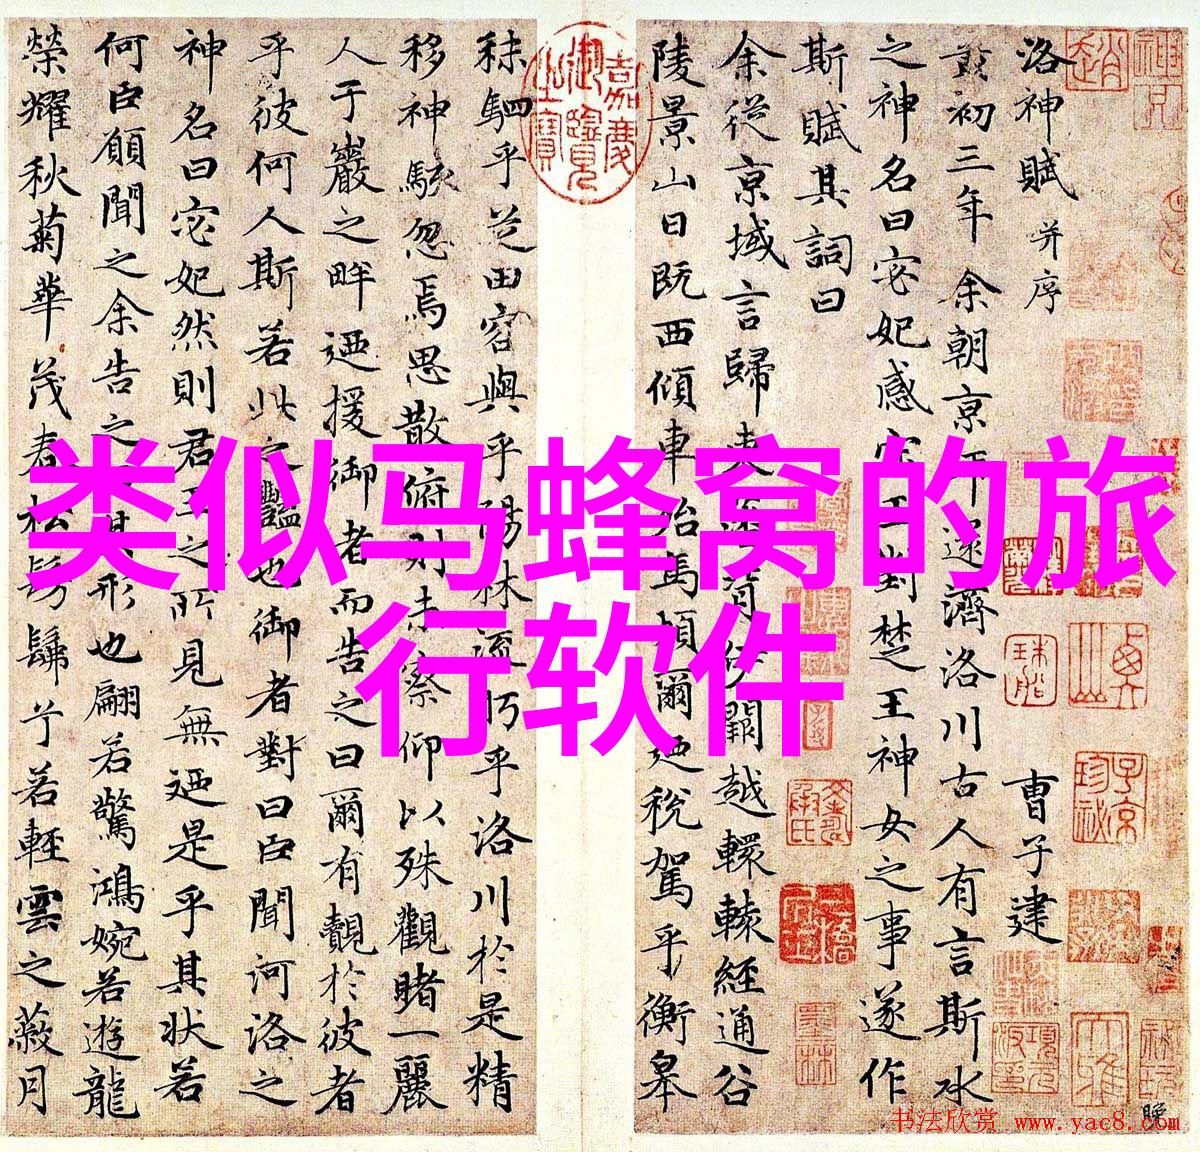 类似马蜂窝的旅
行软件
洛神賦 并序 曹子建
黃初三年余朝京師還濟洛川古人有言斯水
之神名曰宓妃感宋玉對楚王神女之事遂作
斯賦其詞曰
余從京域言歸東藩背伊闕越轘轅經通谷
陵景山日既西傾車殆馬煩爾迺稅駕乎衡皋
嘉慶御覽之寶
秣駟乎芝田容與乎陽林流眄乎洛川於是精
移神駭忽焉思散俯則未察仰以殊觀睹一麗
人于巖之畔迺援御者而告之曰爾有覿於彼者
乎彼何人斯若此之豔也御者對曰臣聞河洛之
神名曰宓妃然則君王之所見無迺是乎其狀若
何臣願聞之余告之曰其形也翩若驚鴻婉若遊龍
榮耀秋菊華茂春松髣髴兮若輕雲之蔽月
书法欣赏 www.yac8.com